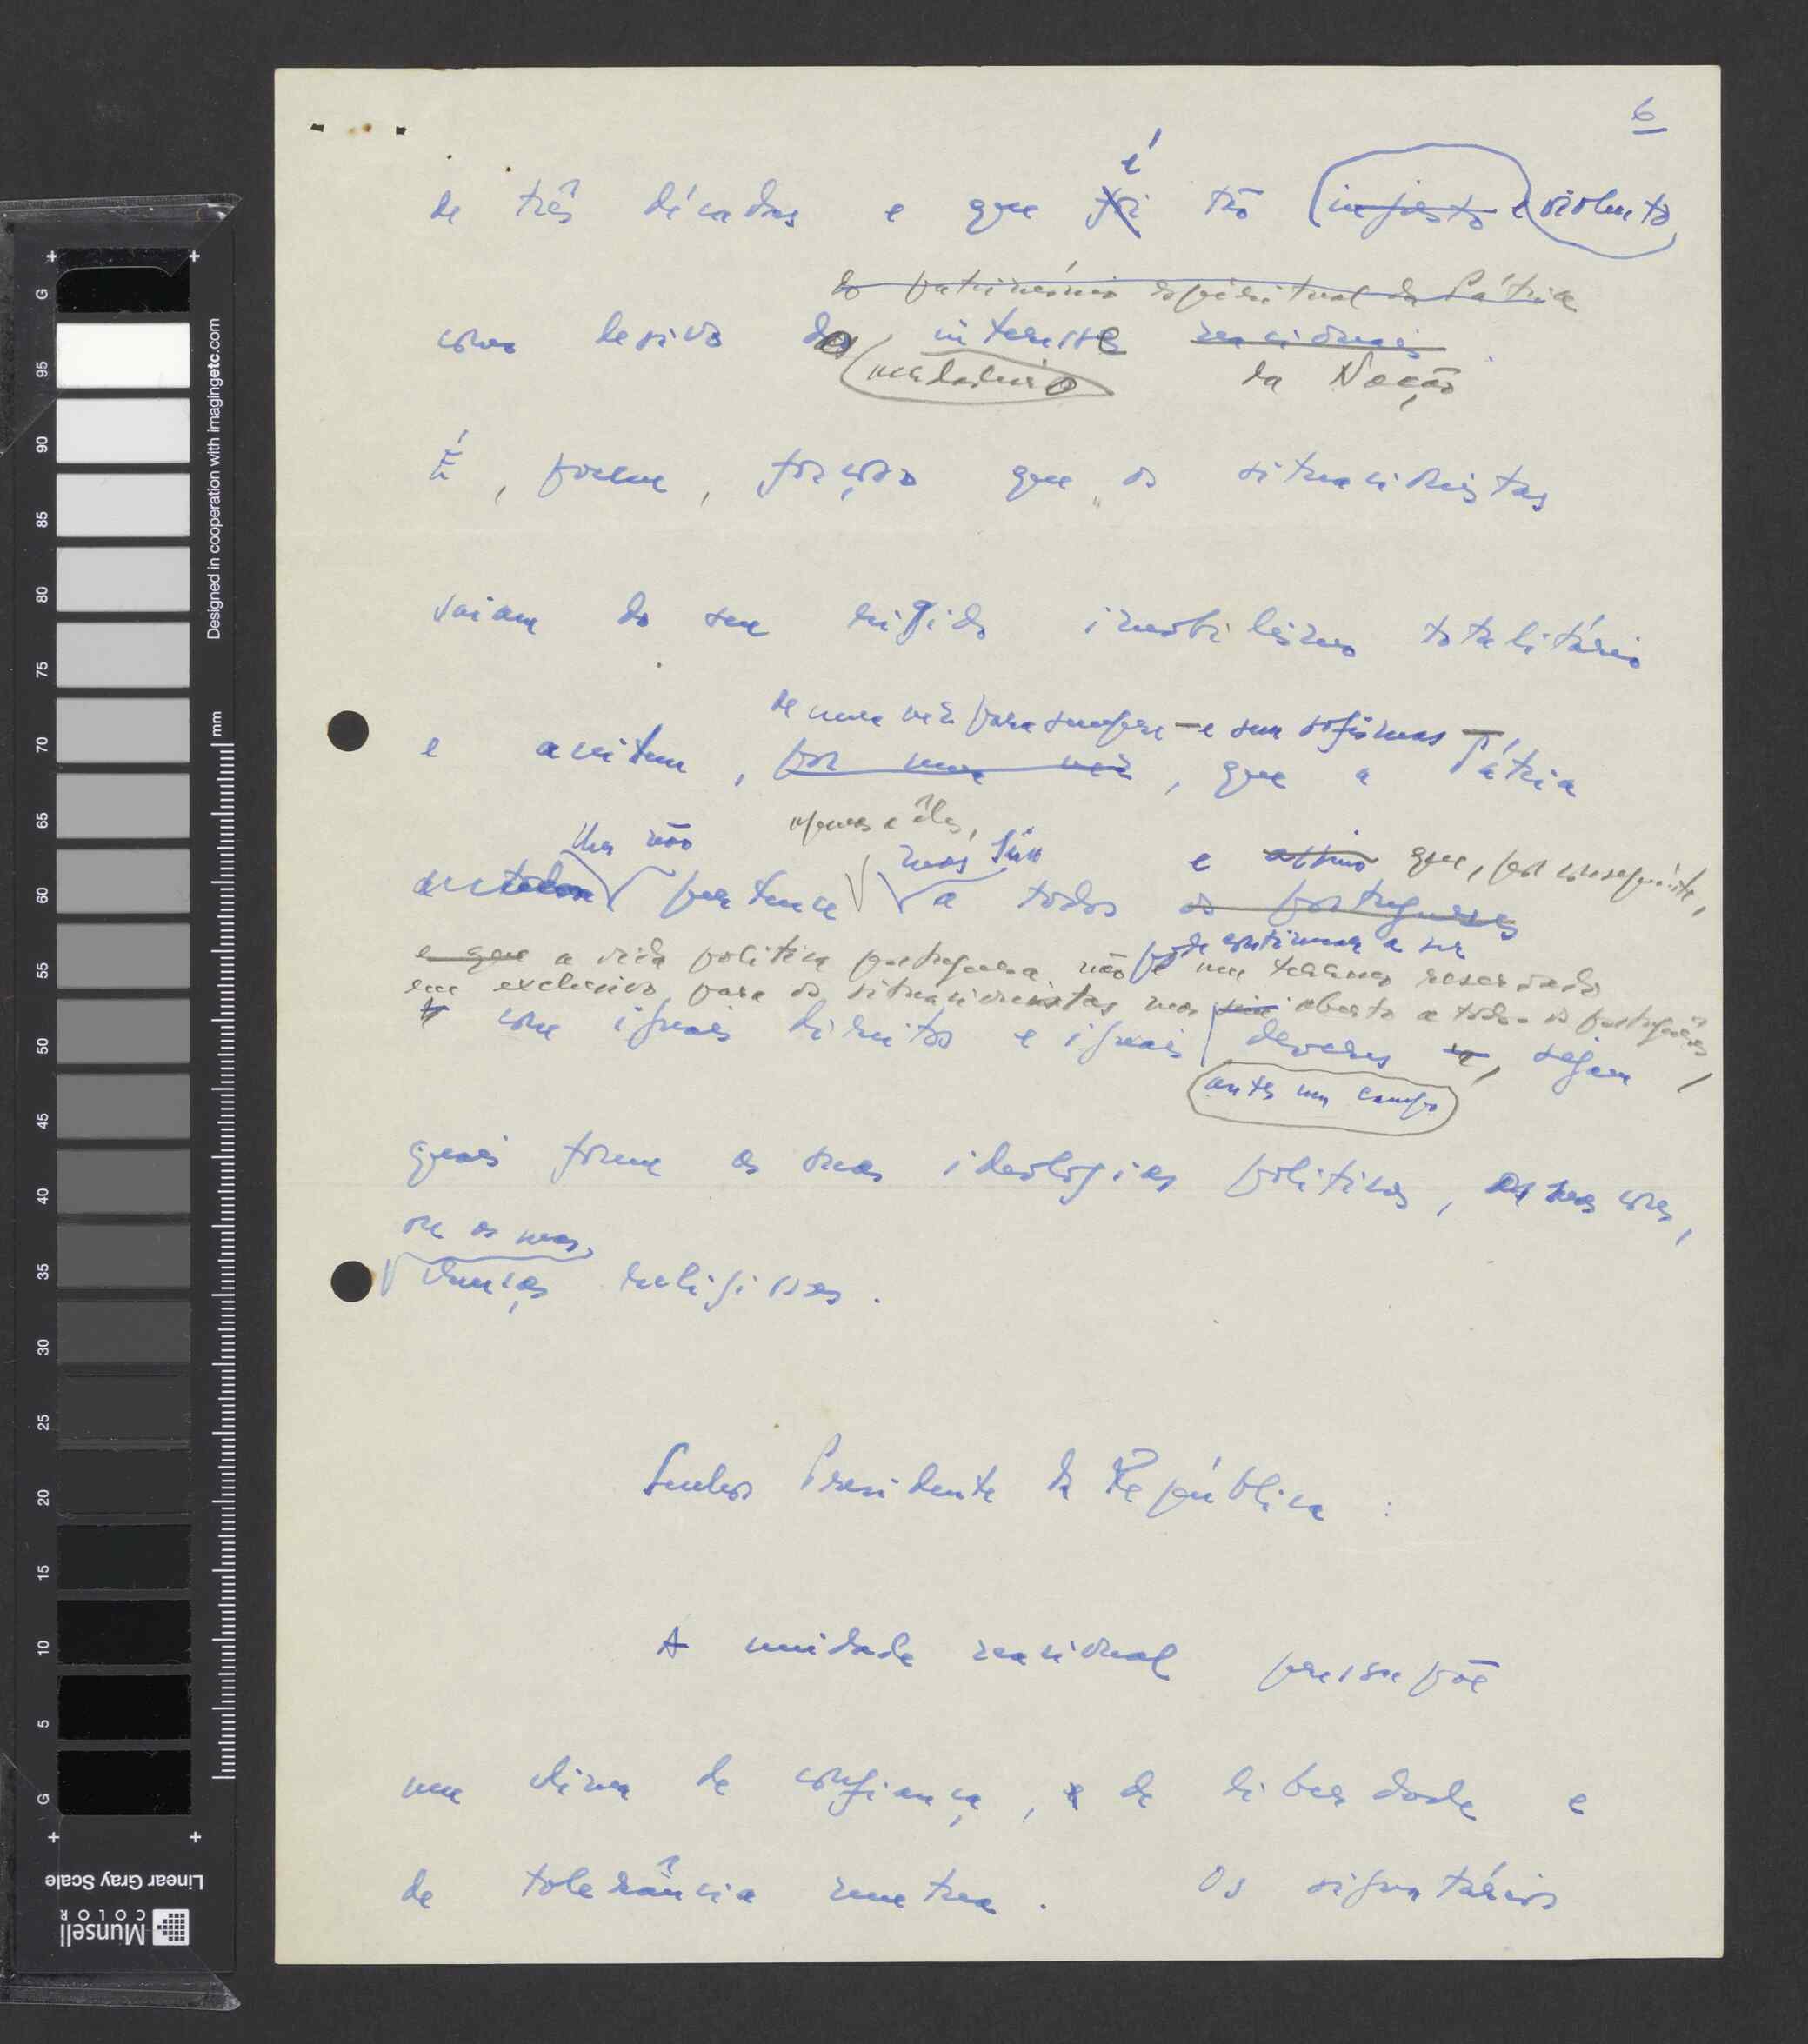 6
é
de três décadas e que foi tão injusto e violento
do património espiritual da Pátria
como lesivo do interesse nacionais.
verdadeiro da Nação
É, porém, forçoso que os situacionistas
saiam do seu rígido imobilismo totalitário
de uma vez para sempre - e sem sofismas
e aceitem, por uma vez, que a Pátria
lhes não apenas a êles, mas sim e assim que, por conseguinte,
pertence a todos os portugueses
pode continuar a ser
e que a vida política portuguesa não é um terreno reservado
em exclusivo para os situacionistas mas sim aberto a todos os portugueses
com iguais direitos e iguais deveres, sejam
antes um campo
quais forem as suas ideologias políticas, as suas cores,
ou as suas
crenças religiosas.
Senhor Presidente da República:
A unidade nacional pressupõe
um clima de confiança, de liberdade e
de tolerância mútua. Os signatários
G
95
90
85
80
75
70
65
60
55
50
45
40
35
30
25
20
15
10
5
G
mm
Designed in cooperation with imagingetc.com
Linear Gray Scale
Munsell
COLOR